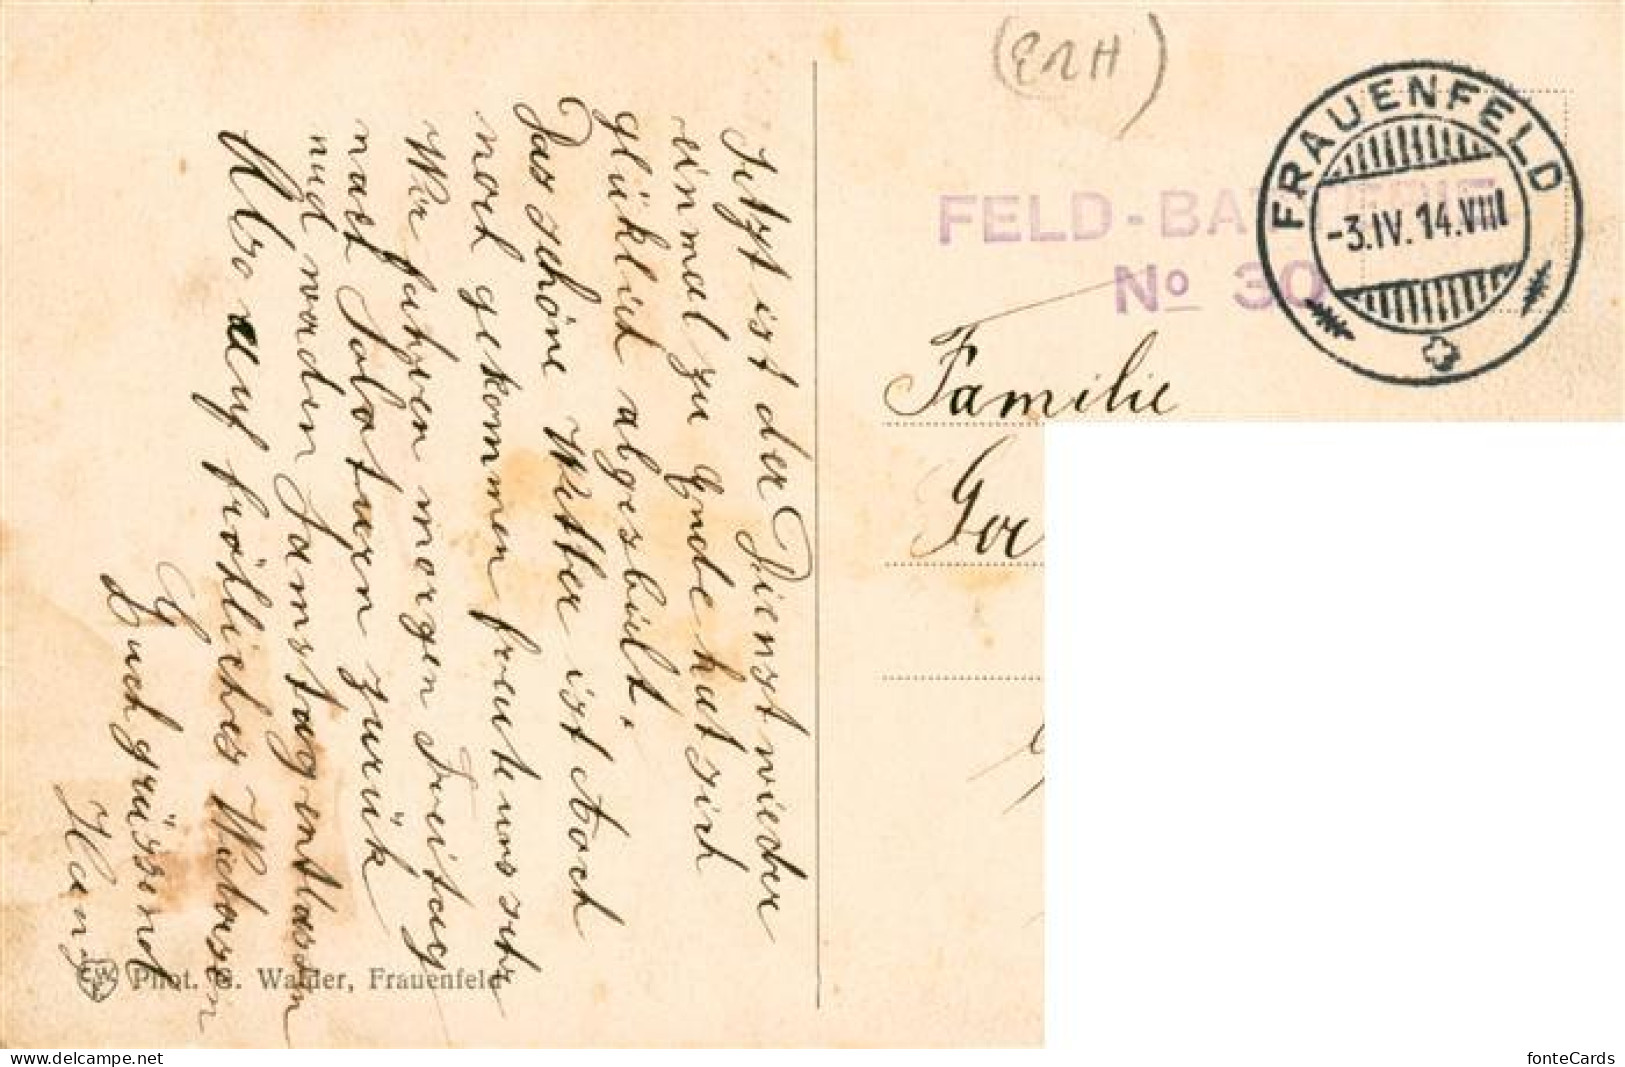 Jetzt ist der Dienst wieder
einmal zu Ende hat sich
glüklich abgespült.
Das schöne Wetter ist doch
noch gekommen freute uns sehr
Wir fahren morgen Freitag
nach Solothurn zurük
und werden Samstag entlassen
Also auf fröhliches Widersen
Euch grüssend
Hans
Phot. G. Walder, Frauenfeld
(ENH)
FRAUENFELD
-3.IV.14.VIII
FELD-BATTERIE
No 30
Familie
Ger
fonteCards